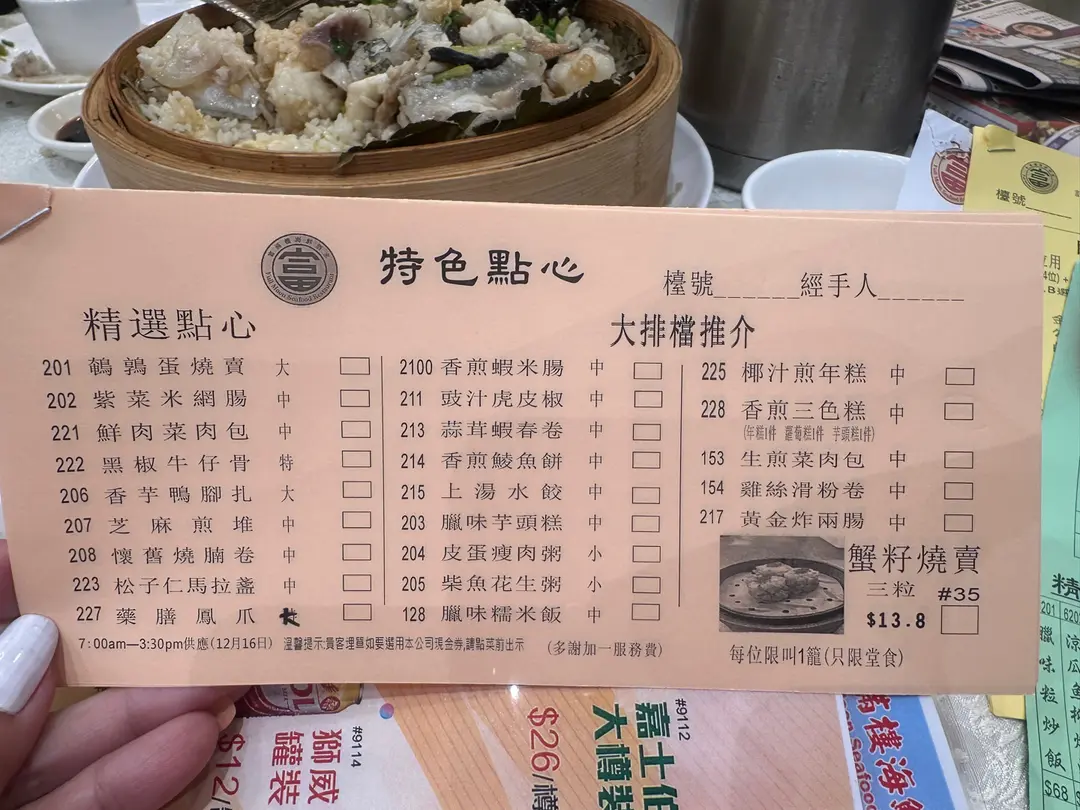 特色點心
檯號_______經手人_______
精選點心
201 鵪鶉蛋燒賣 大
202 紫菜米網腸 中
221 鮮肉菜肉包 中
222 黑椒牛仔骨 特
206 香芋鴨腳扎 大
207 芝麻煎堆 中
208 懷舊燒腩卷 中
223 松子仁馬拉盞 中
227 藥膳鳳爪
2100 香煎蝦米腸 中
211 豉汁虎皮椒 中
213 蒜茸蝦春卷 中
214 香煎鯪魚餅 中
215 上湯水餃 中
203 臘味芋頭糕 中
204 皮蛋瘦肉粥 小
205 柴魚花生粥 小
128 臘味糯米飯 中
大排檔推介
225 椰汁煎年糕 中
228 香煎三色糕 中
(年糕1件 蘿蔔糕1件 芋頭糕1件)
153 生煎菜肉包 中
154 雞絲滑粉卷 中
217 黃金炸兩腸 中
蟹籽燒賣
三粒 #35
$13.8
每位限叫1籠(只限堂食)
7:00am—3:30pm供應(12月16日) 溫馨提示:貴客埋單如要選用本公司現金券,請點菜前出示 (多謝加一服務費)
檯號
#9114
獅威
罐裝
$12/
#9112
嘉士伯
大樽裝
$26/樽
樓海
Seafood
精
201
臘味粒炒飯
$68